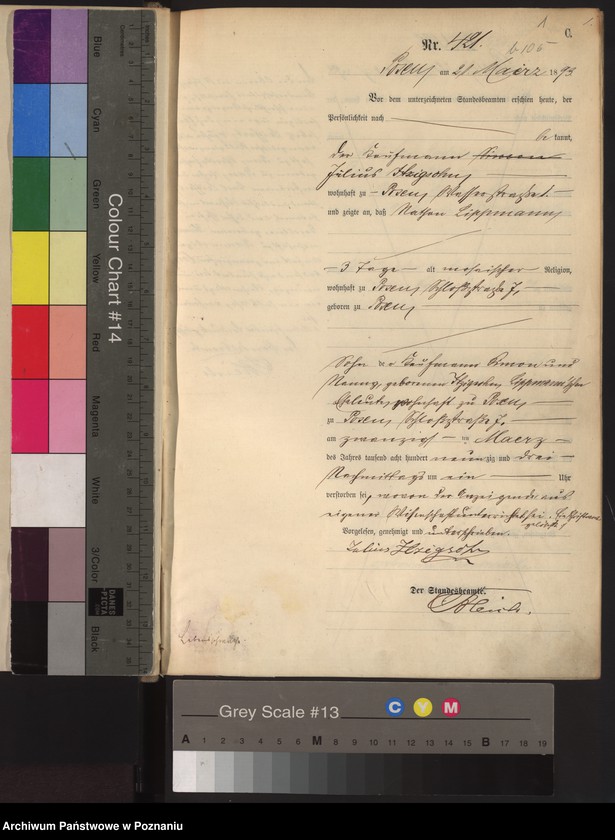 1
C.
Nr. 421.
b 105
Posen, am 21 Maerz 1893
Vor dem unterzeichneten Standesbeamten erschien heute, der
Persönlichkeit nach
be kannt,
der Kaufmann Simon
Julius Itzigsohn,
wohnhaft zu Posen, Wasserstraße
und zeigte an, daß Nathan Lippmann,
3 Tage alt mosaischer Religion,
wohnhaft zu Posen, Schloßstraße 7,
geboren zu Posen,
Sohn der Kaufmann Simon und
Nanny, geborenen Itzigsohn, Lippmann'schen
Eheleute, wohnhaft zu Posen
zu Posen, Schloßstraße 7,
am zwanzig ten Maerz
des Jahres tausend acht hundert neun zig und drei
Nachmittags um ein Uhr
verstorben sei, wovon der Anzeigende aus
eigener Wissenschaft unterrichtet sei.
Vorgelesen, genehmigt und unterschrieben.
Julius Itzigsohn
Der Standesbeamte.
Lebensschwäche
Colour Chart #14
Blue
Cyan
Green
Yellow
Red
Magenta
White
3/Color
Black
Centimetres
DANES
PICTA
Grey Scale #13
C Y M
A 1 2 3 4 5 6 M 8 9 10 11 12 13 14 15 B 17 18 19
Archiwum Państwowe w Poznaniu